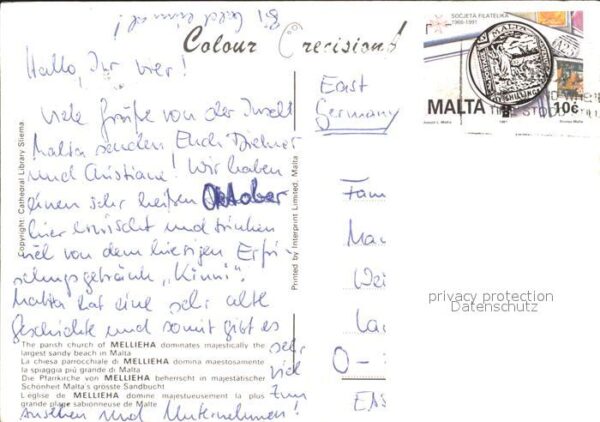 Bis bald einmal!
Colour Precision
Hallo, Ihr vier!
Viele Grüße von der Insel
Malta senden Euch Dietmar
und Christiane! Wir haben
einen sehr heißen Oktober
hier erwischt und trinken
viel von dem hiesigen Erfri-
schungsgetränk "Kinni".
Malta hat eine sehr alte
Geschichte und somit gibt es
sehr
viel
zum
Ansehen und Unternehmen!
The parish church of MELLIEHA dominates majestically the
largest sandy beach in Malta
La chiesa parrocchiale di MELLIEHA domina maestosamente
la spaggia più grande di Malta
Die Pfarrkirche von MELLIEHA beherrscht in majestätischer
Schönheit Malta's grösste Sandbucht
L'église de MELLIEHA domine majestueusement la plus
grande plage sabionneuse de Malte
Copyright: Cathedral Library Sliema
Printed by Interprint Limited, Malta
SOCJETA FILATELIKA
1966-1991
MALTA
MALTA 10c
1991
East
Germany
Fam
Ma
Wei
La
O-
EAS
privacy protection
Datenschutz